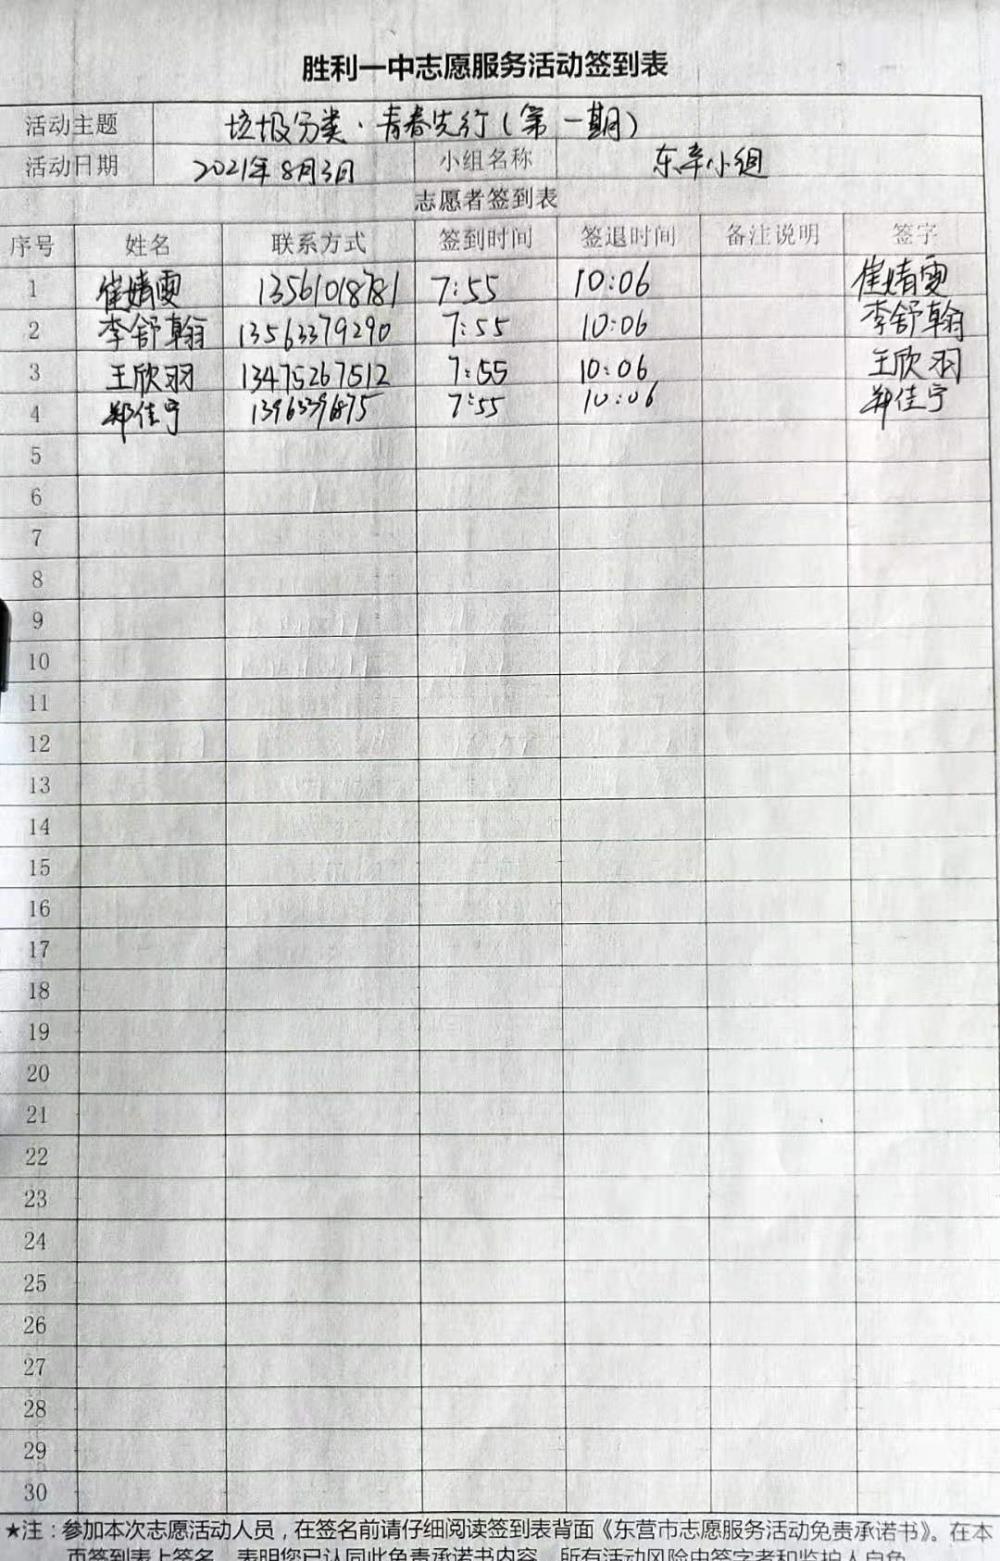 胜利一中志愿服务活动签到表
活动主题 垃圾分类·青春先行(第一期)
活动日期 2021年8月3日 小组名称 东辛小组
志愿者签到表
序号 姓名 联系方式 签到时间 签退时间 备注说明 签字
1 崔婧雯 13561018781 7:55 10:06 崔婧雯
2 李舒翰 13563379290 7:55 10:06 李舒翰
3 王欣羽 13475267512 7:55 10:06 王欣羽
4 郑佳宁 7:55 10:06 郑佳宁
5
6
7
8
9
10
11
12
13
14
15
16
17
18
19
20
21
22
23
24
25
26
27
28
29
30
★注:参加本次志愿活动人员,在签名前请仔细阅读签到表背面《东营市志愿服务活动免责承诺书》。在本
页签到表上签名,表明您已认同此免责承诺书内容,所有活动风险由签字者和监护人自负